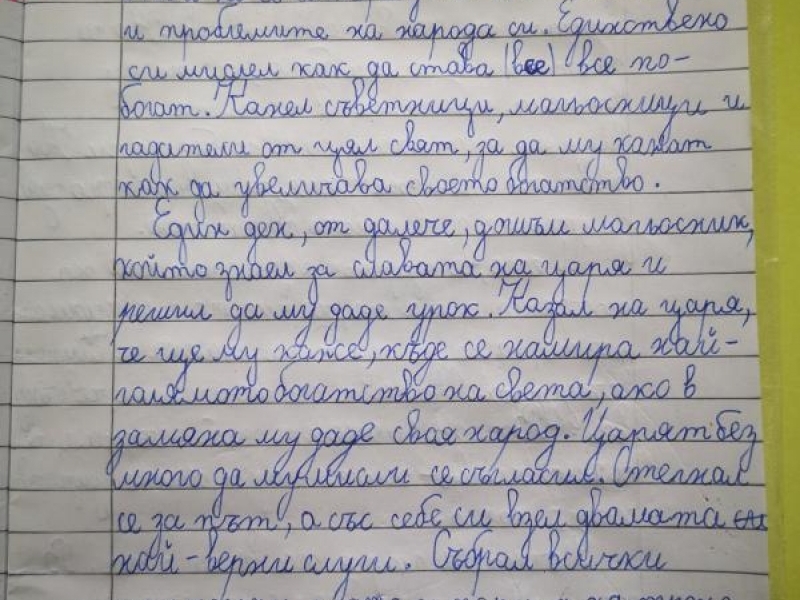 и проблемите на народа си. Единствено
си мислел как да става (все) все по-
богат. Канел съветници, магьосници и
гадатели от цял свят, за да му кажат
как да увеличава своето богатство.
Един ден, от далече, дошъл магьосник,
който знаел за славата на царя и
решил да му даде урок. Казал на царя,
че ще му каже, къде се намира най-
голямото богатство на света, ако в
замяна му даде своя народ. Царят без
много да му мисли се съгласил. Стегнал
се за път, а със себе си взел двамата
най-верни слуги. Събрал всички